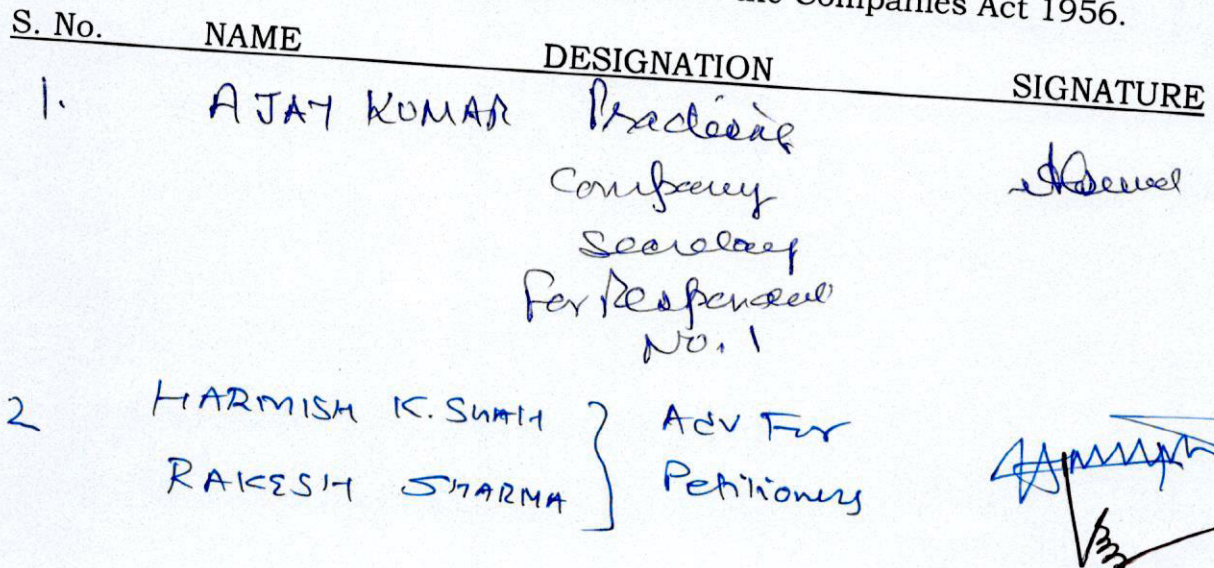 the Companies Act 1956.
S. No. NAME DESIGNATION SIGNATURE
1. AJAY KUMAR Practising
Company
Secretary
For Respondent
No. 1
2 HARMISH K. SHAH } Adv For
RAKESH SHARMA Petitioners